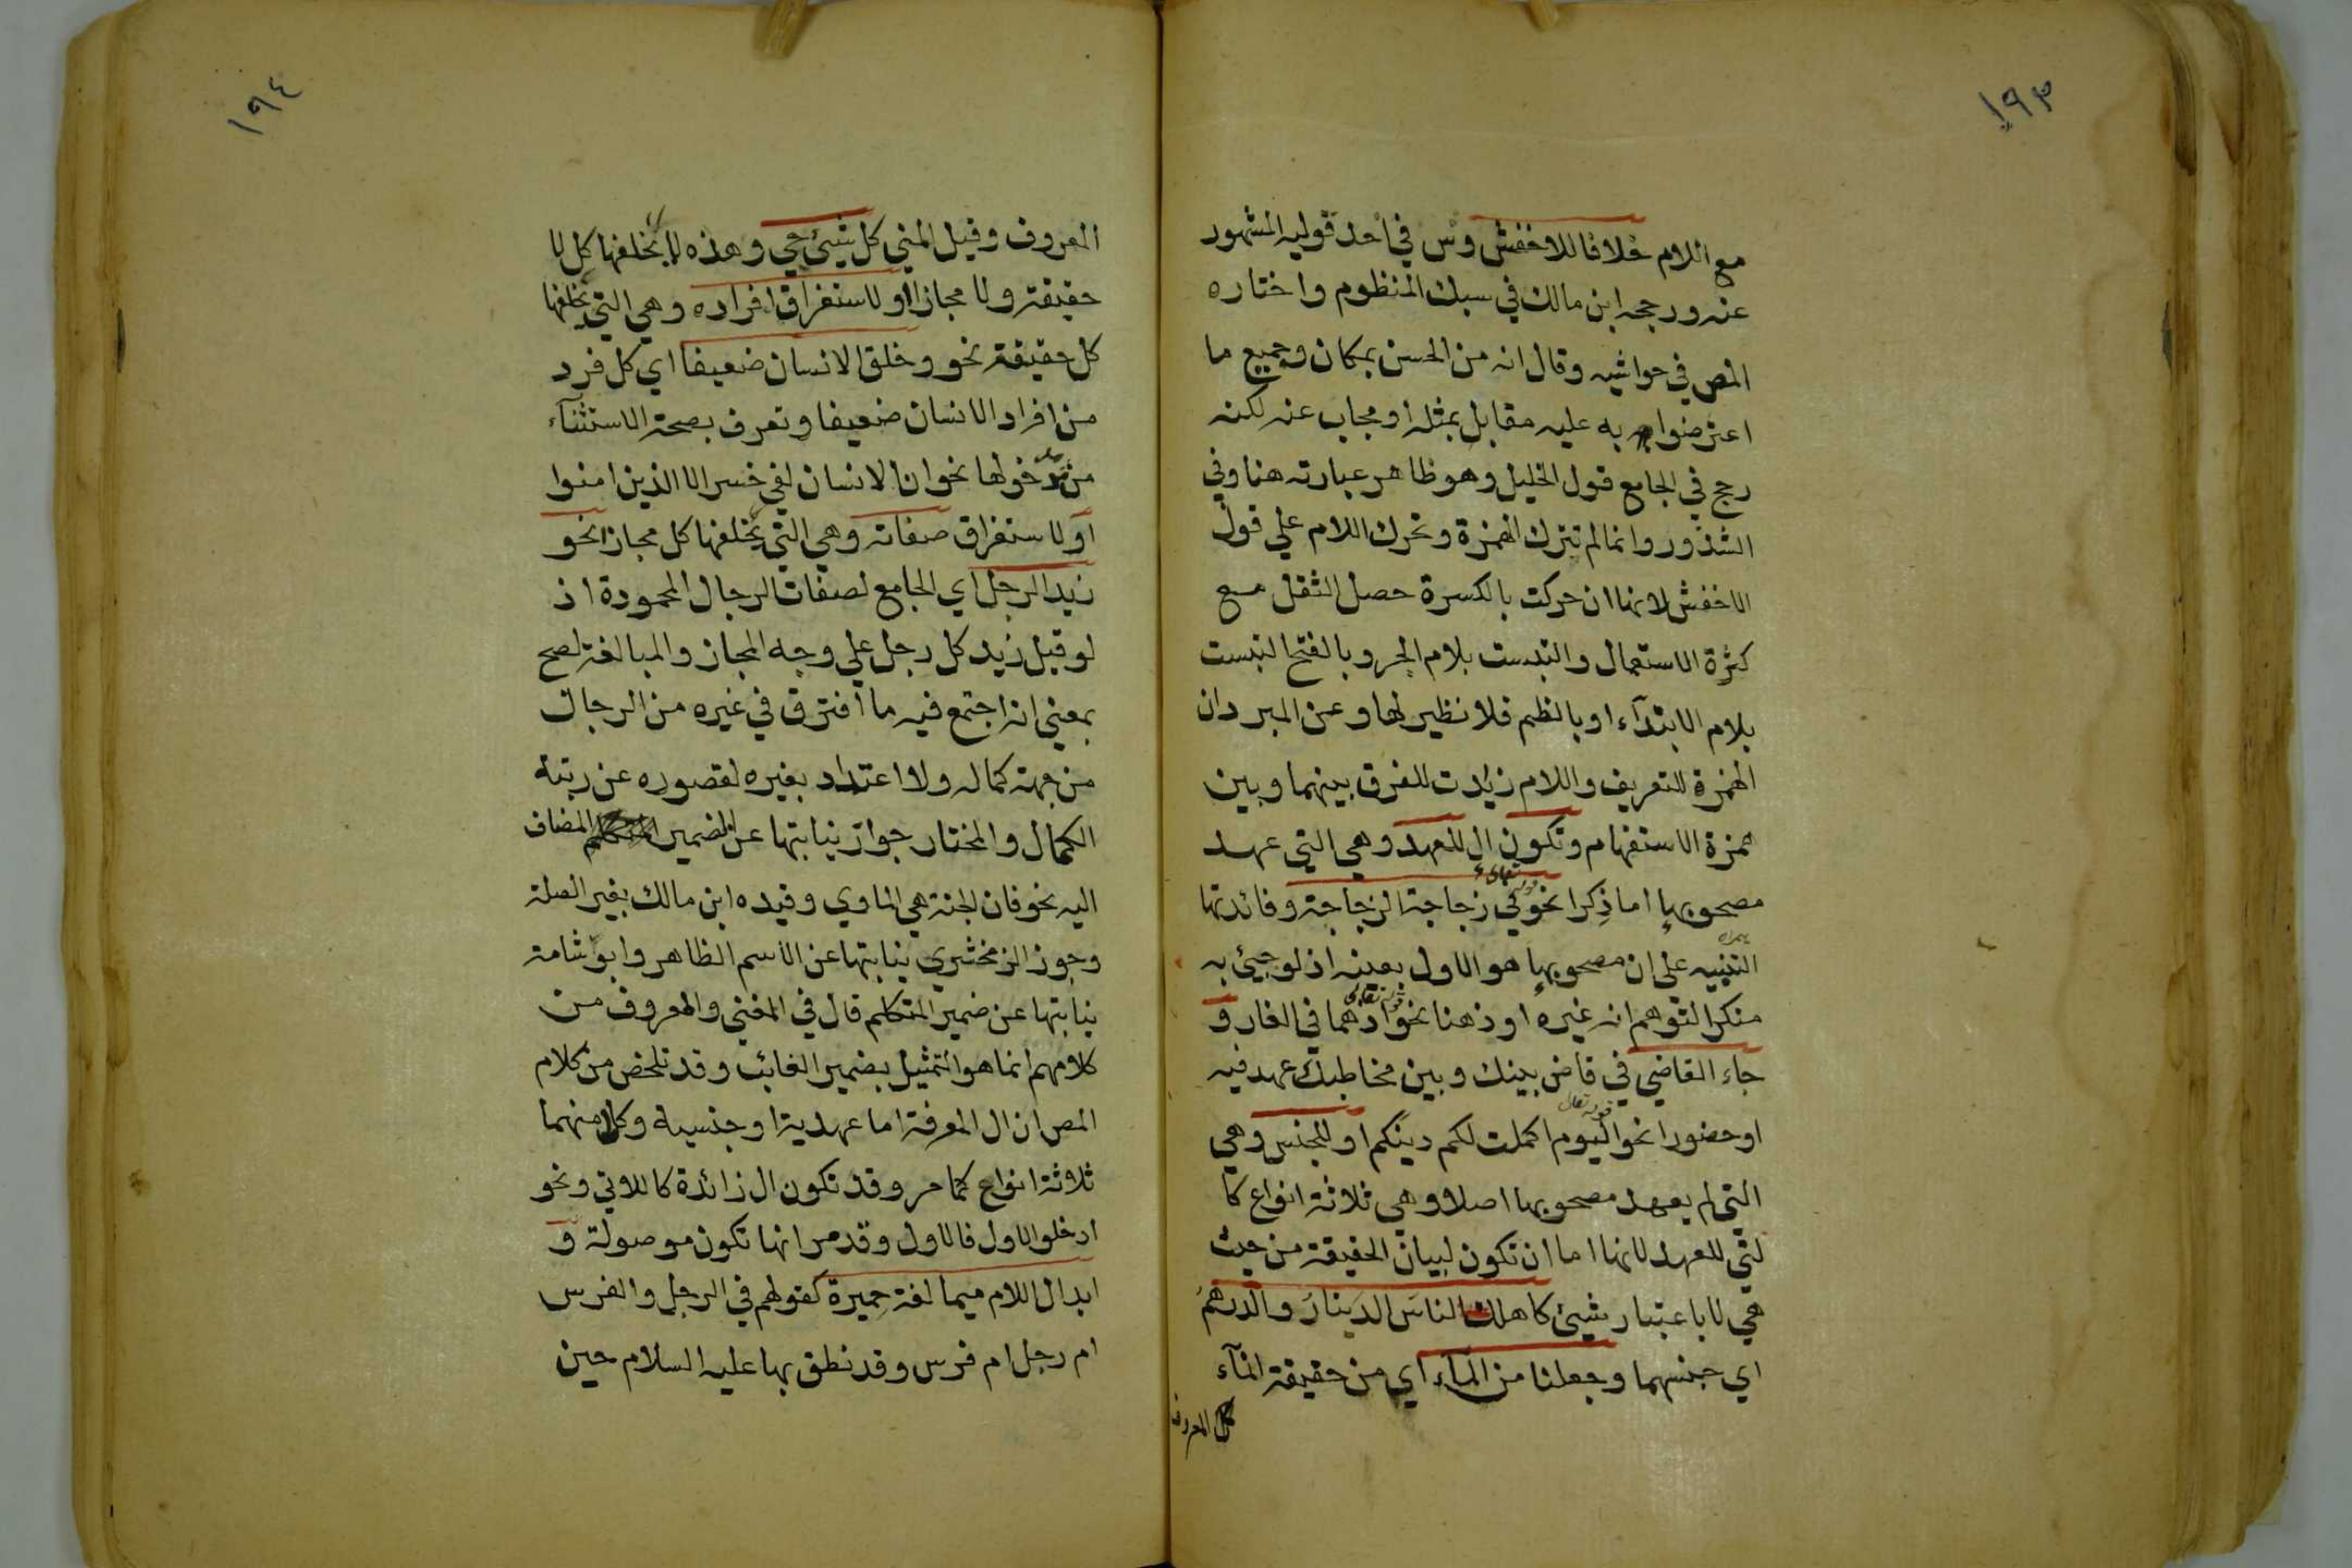 ١٩٣
مع اللام خلافا للاخفش وس في احد قوليه المشهور
عنه ورجحه ابن مالك في سبك المنظوم واختاره
المص في حواشيه وقال انه من الحسن بمكان وجميع ما
اعترضوا به عليه مقابل بمثله او مجاب عنه لكنه
رجح في الجامع قول الخليل وهو ظاهر عبارته هنا وفي
الشذور وانما لم تترك الهمزة وتحرك اللام علي قول
الاخفش لانها ان حركت بالكسرة حصل الثقل مع
كثرة الاستعمال والتبست بلام الجر وبالفتح التبست
بلام الابتدآء او بالظم فلا نظير لها وعن المبرد ان
الهمزة للتعريف واللام زيدت للفرق بينهما وبين
همزة الاستفهام وتكون ال للعهد وهي التي عهد
مصحوبها اما ذكرا نحو قوله تعالى في زجاجة الزجاجة وفائدتها
التنبيه على ان مصحوبها هو الاول بعينه اذ لو جيئ به
منكرا لتوهم انه غيره او ذهنا نحو قوله تعالى اذ هما في الغار و
جاء القاضي في قاض بينك وبين مخاطبك عهد فيه
او حضورا نحو قوله تعالى اليوم اكملت لكم دينكم او للجنس وهي
التي لم يعهد مصحوبها اصلا وهي ثلاثة انواع كا
لتي للعهد لانها اما ان تكون لبيان الحقيقة من حيث
هي لا باعتبار شيئ كاهلك الناسَ الدينارُ والدرهمُ
اي جنسهما وجعلنا من المآء اي من حقيقة المآء
المعروف
١٩٤
المعروف وقيل المني كل شيئ حي وهذه لا يخلفها كل لا
حقيقة ولا مجازا او لاستغراق افراده وهي التي يخلفها
كل حقيقة نحو وخلق الانسان ضعيفا اي كل فرد
من افراد الانسان ضعيفا وتعرف بصحة الاستثنآء
من مدخولها نحو ان الانسان لفي خسر الا الذين امنوا
او لاستغراق صفاته وهي التي يخلفها كل مجازا نحو
زيد الرجل اي الجامع لصفات الرجال المحمودة اذ
لو قيل زيد كل رجل علي وجه المجاز والمبالغة لصح
بمعني انه اجتمع فيه ما افترق في غيره من الرجال
من جهة كماله ولا اعتداد بغيره لقصوره عن رتبة
الكمال والمختار جواز نيابتها عن الضمير المضاف
اليه نحو فان الجنة هي الماوي وقيده ابن مالك بغير الصلة
وجوز الزمخشري نيابتها عن الاسم الظاهر وابو شامة
نيابتها عن ضمير المتكلم قال في المغني والمعروف من
كلامهم انما هو التمثيل بضمير الغائب وقد تلخص من كلام
المص ان ال المعرفة اما عهدية او جنسية وكل منهما
ثلاثة انواع كما مر وقد تكون ال زائدة كاللاتي ونحو
ادخلوا الاول فالاول وقد مر انها تكون موصولة و
ابدال اللام ميما لغة حميرة كقولهم في الرجل والفرس
ام رجل ام فرس وقد نطق بها عليه السلام حين